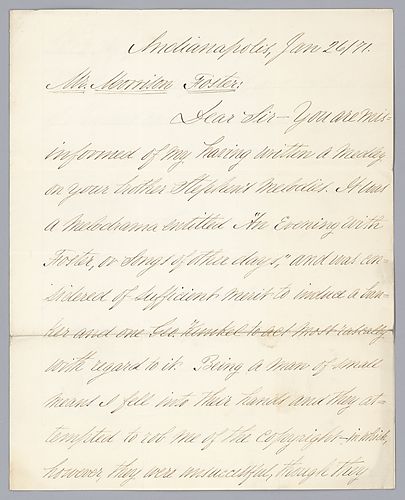 Indianapolis, Jan 26/71.
Mr. Morrison Foster:
Dear Sir — You are mis-
informed of my having written a Medley
on your brother Stephen's Melodies. It was
a Melodrama entitled "An Evening with
Foster, or Songs of other days," and was con-
sidered of sufficient merit to induce a ban-
ker and one Geo. Kunkel to act most rascally
with regard to it. Being a man of small
means I fell into their hands and they at-
tempted to rob me of the copyright — in which,
however, they were unsuccessful, though they